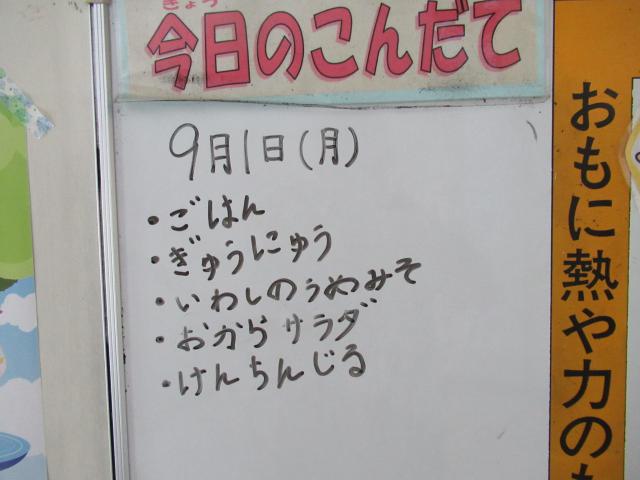 きょう
今日のこんだて
9月1日(月)
・ごはん
・ぎゅうにゅう
・いわしのうめみそ
・おからサラダ
・けんちんじる
おもに熱や力の